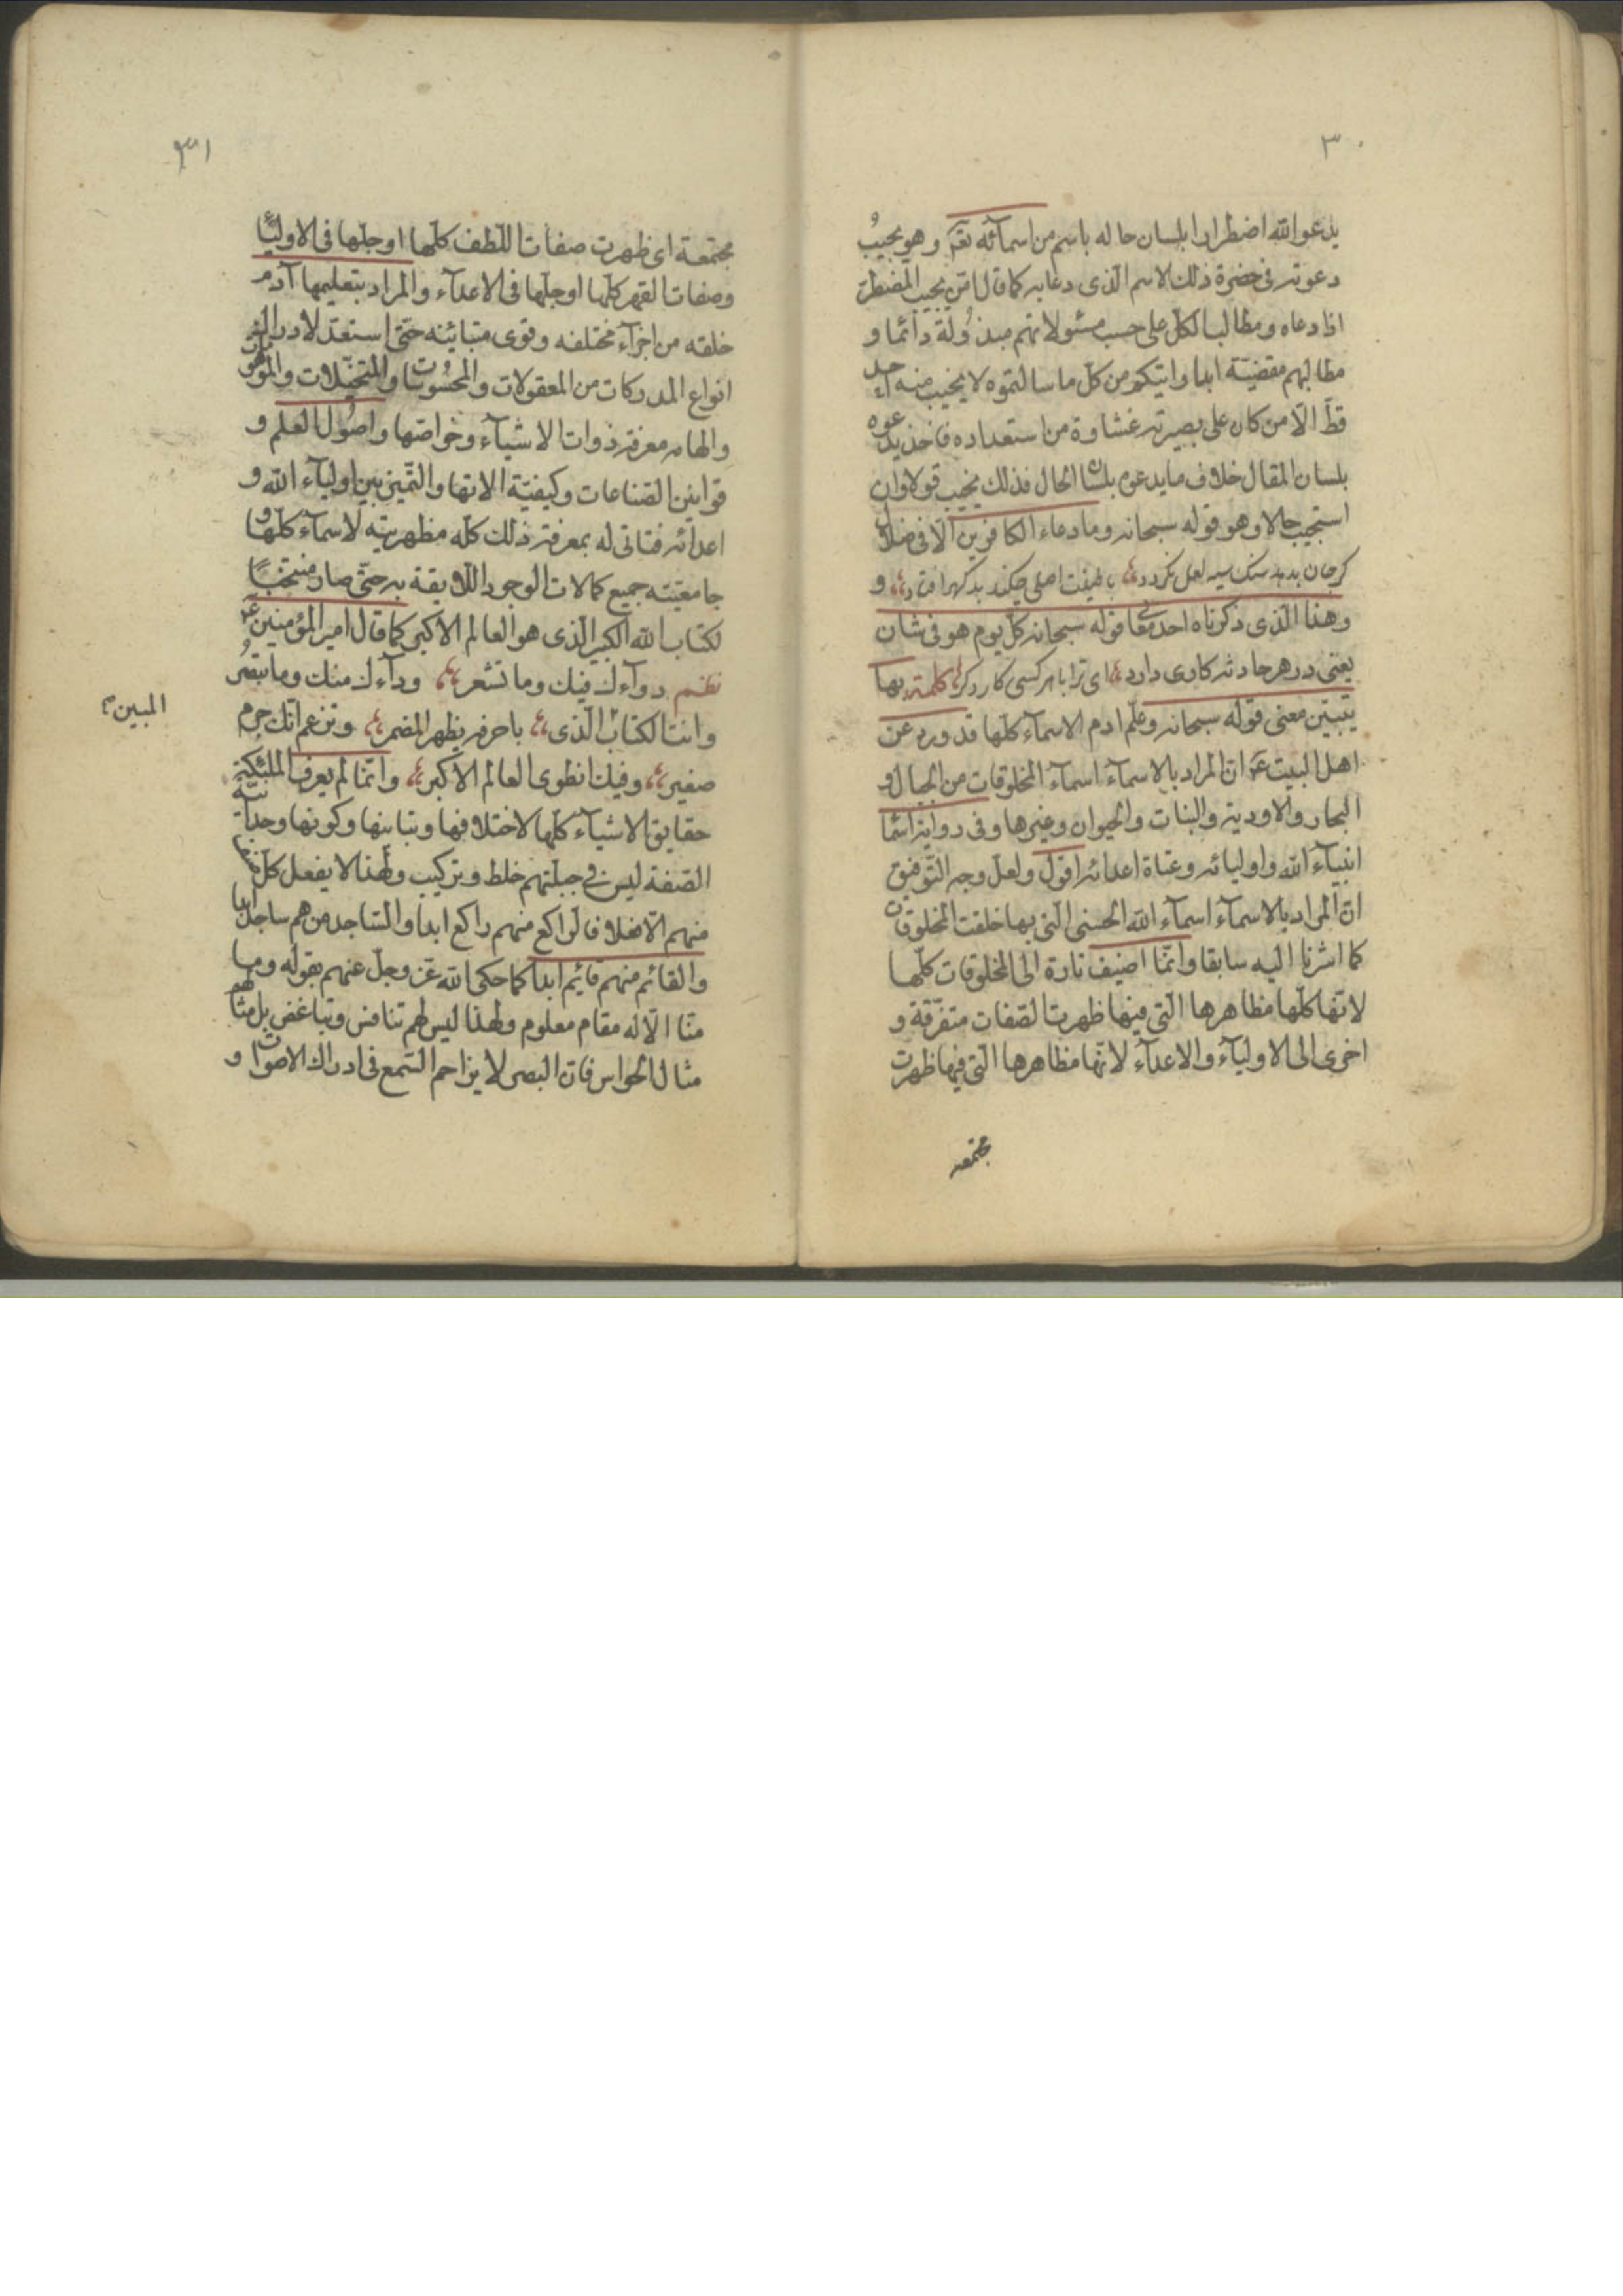 ٣٠
يدعو الله اضطرارا بلسان حاله باسم من اسمائه تعم وهو يجيب
دعوته فى حضرة ذلك الاسم الذى دعا به كما قال امّن يجيب المضطرّ
اذا دعاه ومطالب الكلّ على حسب مسئولاتهم مبذولة دائما و
مطالبهم مقضيّة ابدا واتيكم من كلّ ما سالتموه لا يخيب منه احد
قطّ الّا من كان على بصيرته غشاوة من استعداده فاخذ يدعوه
بلسان المقال خلاف ما يدعوه بلسان الحال فذلك يخيب قولا وان
استجيب حالا وهو قوله سبحانه وما دعاء الكافرين الّا فى ضلال
كرجان بدهد سنك سيه لعل نكردد با طينت اصلى چكند بد كهر افتاد و
وهذا الّذى ذكرناه احد معانى قوله سبحانه كلّ يوم هو فى شان
يعنى در هر حادثه كارى دارد اى ترا با هر كسى كار دكر كلمة بها
يتبيّن معنى قوله سبحانه وعلّم ادم الاسمآء كلّها قد ورد عن
اهل البيت ع انّ المراد بالاسمآء اسمآء المخلوقات من الجبال و
البحار والاودية والنبات والحيوان وغيرها وفى رواية اسما
انبيآء الله واوليائه وعتاة اعدائه اقول ولعل وجه التّوفيق
انّ المراد بالاسمآء اسمآء الله الحسنى الّتى بها خلقت المخلوقات
كما اشرنا اليه سابقا وانّما اضيف تارة الى المخلوقات كلّها
لانّها كلّها مظاهرها الّتى فيها ظهرت الصّفات متفرّقة و
اخرى الى الاوليآء والاعدآء لانّها مظاهرها الّتى فيها ظهرت
مجتمعه
٣١
مجتمعة اى ظهرت صفات اللّطف كلّها او جلّها فى الاوليآء
وصفات القهر كلّها او جلّها فى الاعدآء والمراد بتعليمها آدم
خلقه من اجزآء مختلفه وقوى متبائنه حتّى استعدّ لادراك
انواع المدركات من المعقولات والمحسوسات والمتخيّلات والموهومات
والهامه معرفة ذوات الاشيآء وخواصّها واصول العلم و
قوانين الصّناعات وكيفيّة الاتها والتّميز بين اوليآء الله و
اعدائه فتاتى له بمعرفة ذلك كلّه مظهريته لاسمآء كلّها و
جامعيّته جميع كمالات الوجود اللّايقة به حتّى صار منتخبًا
لكتاب الله الكبير الّذى هو العالم الاكبر كما قال امير المؤمنين ع
نظم دوآءك فيك وما تشعر ودآءك منك وما تبصر
وانت الكتاب الّذى باحرفه يظهر المضمر وتزعم انّك جرم
المبين
صغير وفيك انطوى العالم الاكبر وانّما لم يعرف الملئكة
حقايق الاشيآء كلّها لاختلافها وتباينها وكونها وحدانيّة
الصّفة ليس فى جبلّتهم خلط وتركيب ولهذا لا يفعل كلّ صنف
منهم الّا فعلا فالرّاكع منهم راكع ابدا والسّاجد منهم ساجد ابدا
والقائم منهم قائم ابدا كما حكى الله عزّ وجلّ عنهم بقوله وما
منّا الّا له مقام معلوم ولهذا ليس لهم تنافس وتباغض بل مثالهم
مثال الحواس فانّ البصر لا يزاحم السّمع فى ادراك الاصوات و